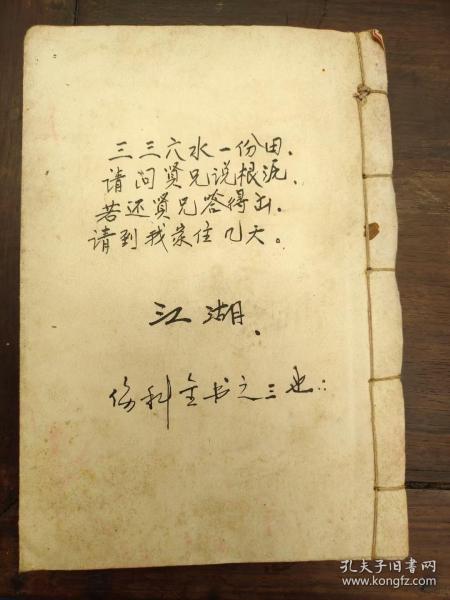 三三六水一份田.
请问贤兄说根源.
若还贤兄答得出.
请到我家住几天。
江湖.
伤科全书之三也::
孔夫子旧书网
www.kongfz.com